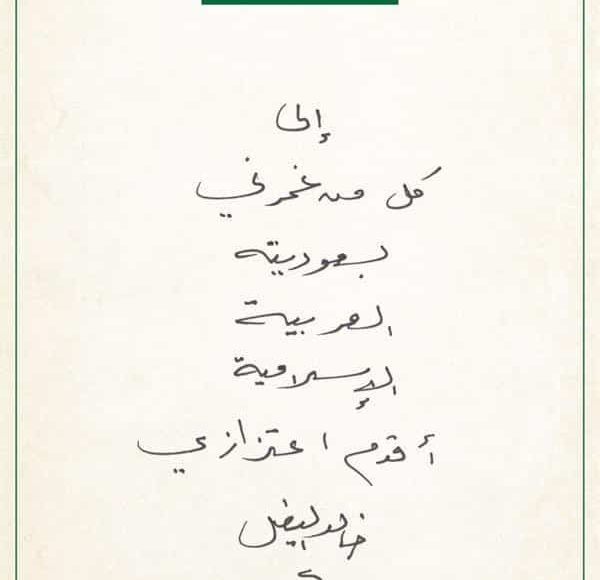 إلى
كل من غمرني
بسعوديته
العربية
الإسلامية
أقدم اعتزازي
خالد الفيصل